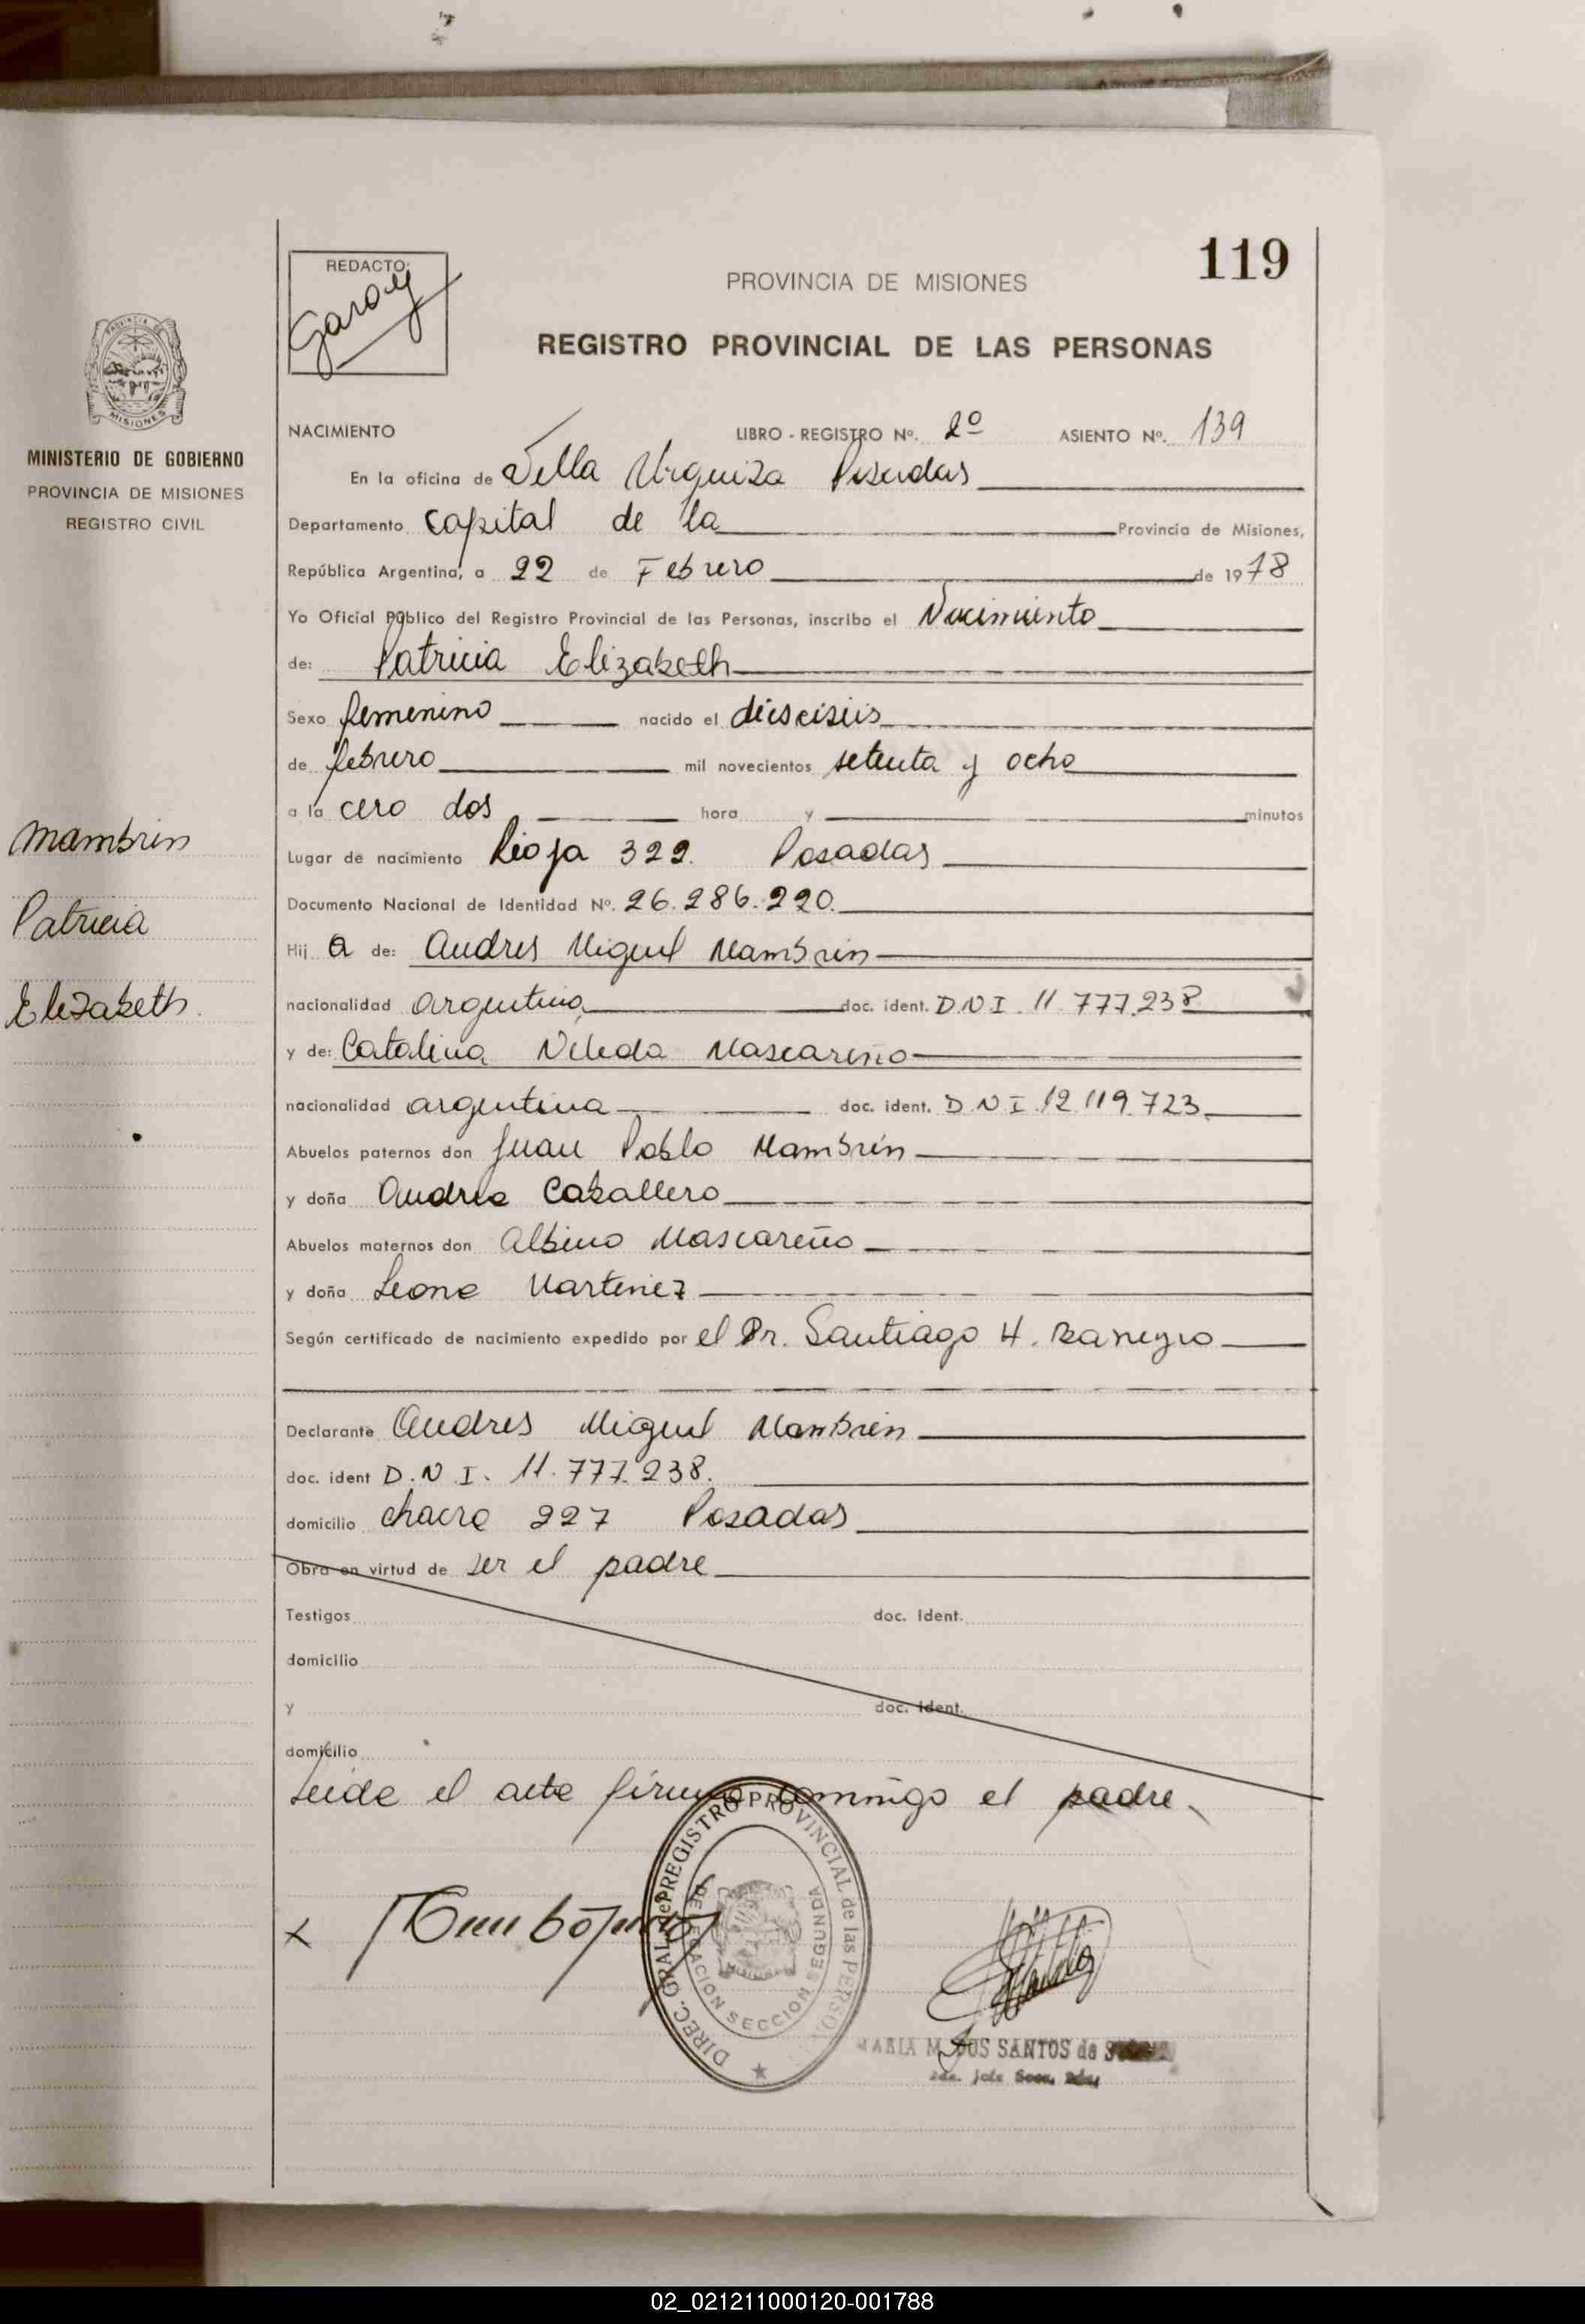 119
REDACTO:
Garay
PROVINCIA DE MISIONES
REGISTRO PROVINCIAL DE LAS PERSONAS
MINISTERIO DE GOBIERNO
PROVINCIA DE MISIONES
REGISTRO CIVIL
NACIMIENTO LIBRO - REGISTRO Nº. 2º ASIENTO Nº. 139
En la oficina de Villa Urquiza Posadas
Departamento capital de la Provincia de Misiones,
República Argentina, a 22 de Febrero de 1978
Yo Oficial Público del Registro Provincial de las Personas, inscribo el Nacimiento
de: Patricia Elizabeth
Sexo femenino nacido el dieciseis
de febrero mil novecientos setenta y ocho
a la cero dos hora y minutos
Lugar de nacimiento Rioja 322. Posadas
Documento Nacional de Identidad Nº. 26.286.220.
Hij a de: Andres Miguel Mambrin
nacionalidad argentina doc. ident. D.N.I. 11.777.238
y de: Catalina Nileda Mascareño
nacionalidad argentina doc. ident. D.N.I. 12.119.723
Abuelos paternos don Juan Pablo Mambrin
y doña Andrea Caballero
Abuelos maternos don Albino Mascareño
y doña Leona Martinez
Según certificado de nacimiento expedido por el Dr. Santiago H.
Declarante Andres Miguel Mambrin
doc. ident D.N.I. 11.777.238.
domicilio chacra 227 Posadas
Obra en virtud de ser el padre
Testigos doc. Ident.
domicilio
y doc. ident.
domicilio
Leida el acta firma conmigo el padre.
Mambrin
Patricia
Elizabeth
x
DIREC. GRAL. del REGISTRO PROVINCIAL de las PERSONAS
DELEGACION SECCION SEGUNDA
MARIA M. DOS SANTOS de
02_021211000120-001788